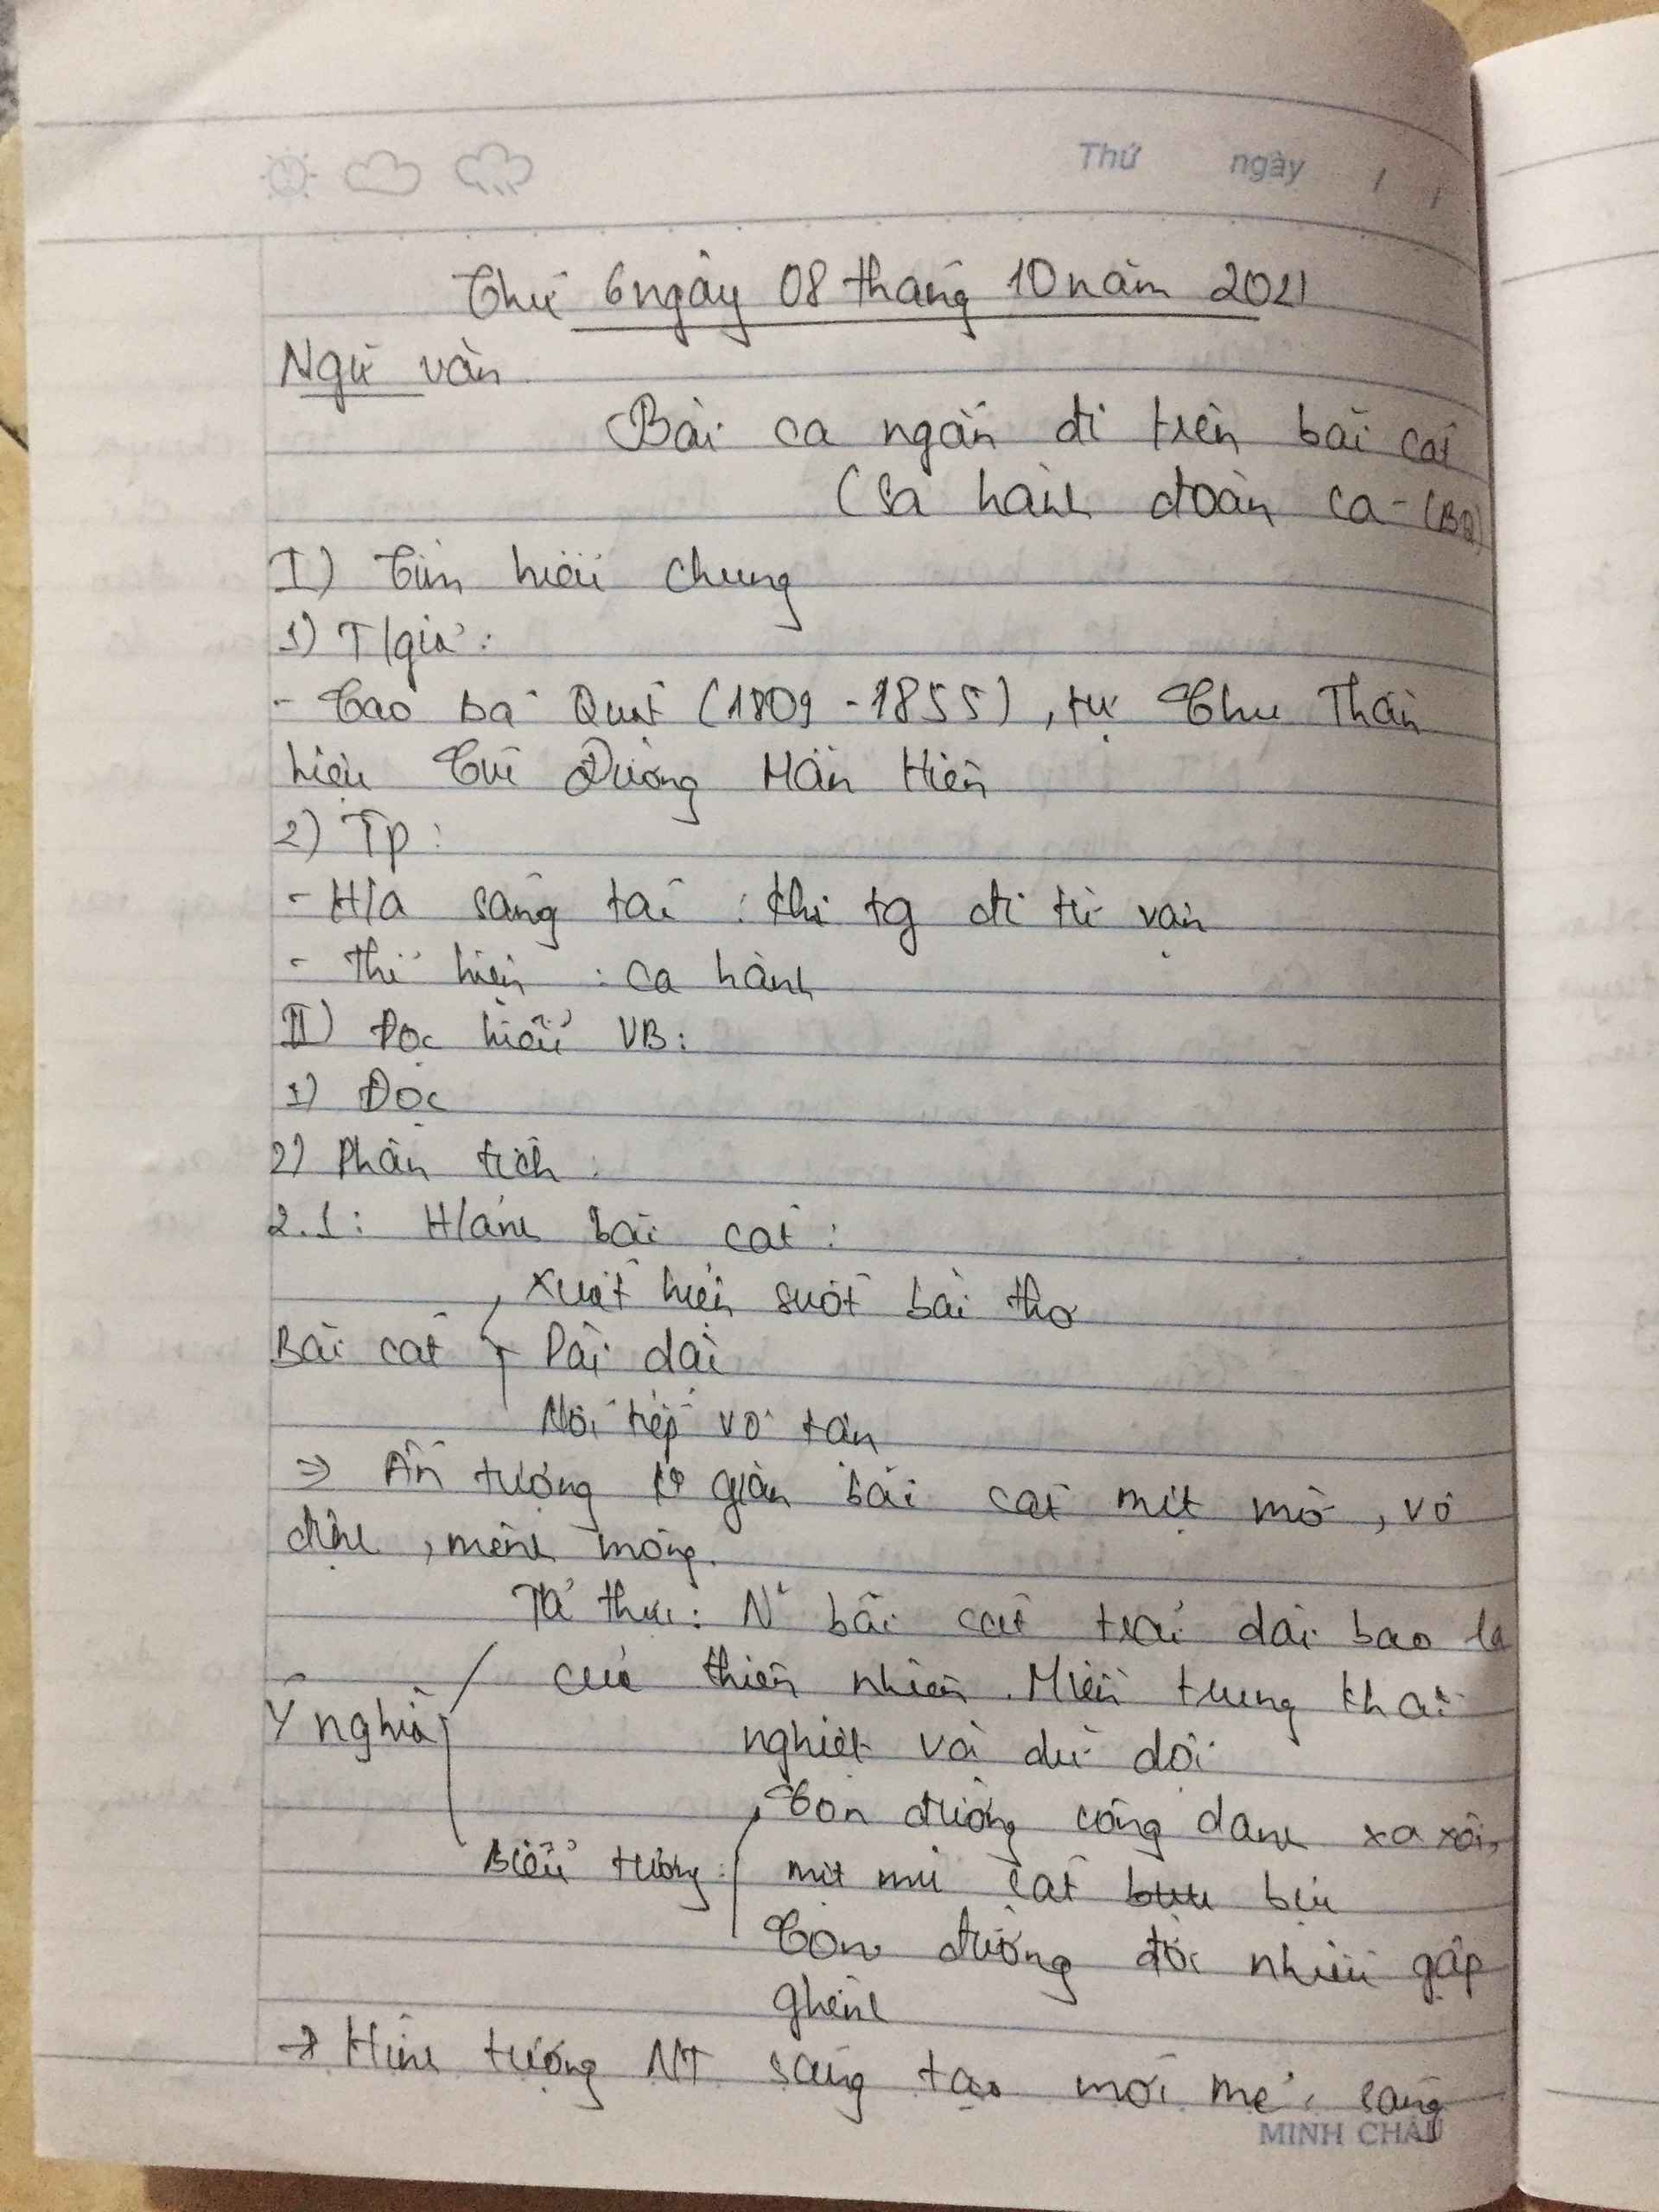 Thứ ngày / /
Thứ 6 ngày 08 tháng 10 năm 2021
Ngữ văn
Bài ca ngắn đi trên bãi cát
(Sa hành đoản ca - (BQ)
I) Tìm hiểu chung
1) T/giả:
- Cao Bá Quát (1809 - 1855), tự Chu Thần
hiệu Cúc Đường Mẫn Hiên
2) Tp:
- H/a sáng tác: khi tg đi từ vạn
- Thể hiện: ca hành
II) Đọc hiểu VB:
1) Đọc
2) Phân tích:
2.1: H/ảnh bãi cát:
xuất hiện suốt bài thơ
Bãi cát Dài dài
Nối tiếp vô tận
=> Ấn tượng ko gian bãi cát mịt mờ, vô
định, mênh mông.
Tả thực: N~ bãi cát trải dài bao la
của thiên nhiên. Miền trung khắc
Ý nghĩa
nghiệt và dữ dội
Con đường công danh xa xôi,
Biểu tượng: mịt mù cát bụi
Con đường đời nhiều gập
ghềnh
-> Hình tượng NT sáng tạo mới mẻ, sáng
MINH CHÂU